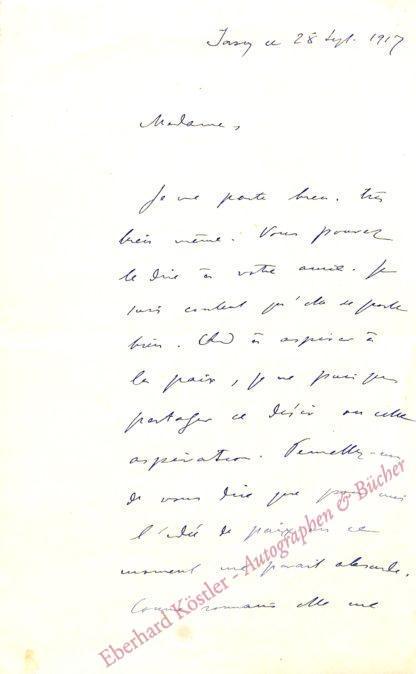 Jassy ce 28 Sept. 1917
Madame,
Je me porte bien, très
bien même. Vous pouvez
le dire à votre amie. Je
suis content qu'elle se porte
bien. Quant à aspirer à
la paix, je ne puis pas
partager ce désir ou cette
aspiration. Permettez-moi
de vous dire que pour moi
l'idée de paix en ce
moment me parait absurde.
Comme roumain elle me
Eberhard Köstler - Autographen & Bücher